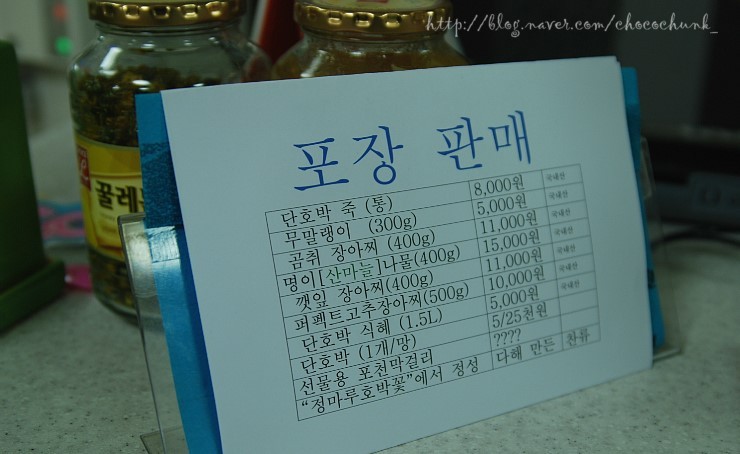 http://blog.naver.com/chocochunk_
꿀레
포장 판매
단호박 죽 (통) 8,000원 국내산
무말랭이 (300g) 5,000원 국내산
곰취 장아찌 (400g) 11,000원 국내산
명이[산마늘]나물(400g) 15,000원 국내산
깻잎 장아찌(400g) 11,000원 국내산
퍼펙트고추장아찌(500g) 10,000원 국내산
단호박 식혜 (1.5L) 5,000원 국내산
단호박 (1개/망) 5/25천원
선물용 포천막걸리 ????
“정마루호박꽃”에서 정성 다해 만든 찬류